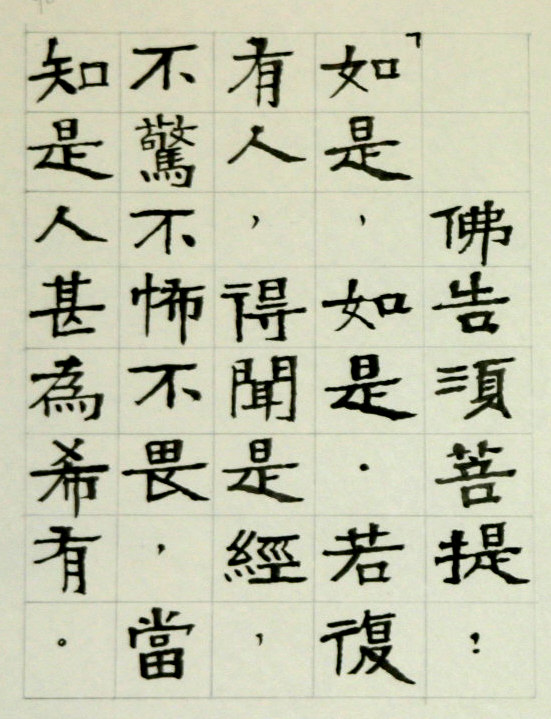 佛告須菩提：
「如是，如是．若復
有人，得聞是經，
不驚不怖不畏，當
知是人甚為希有。